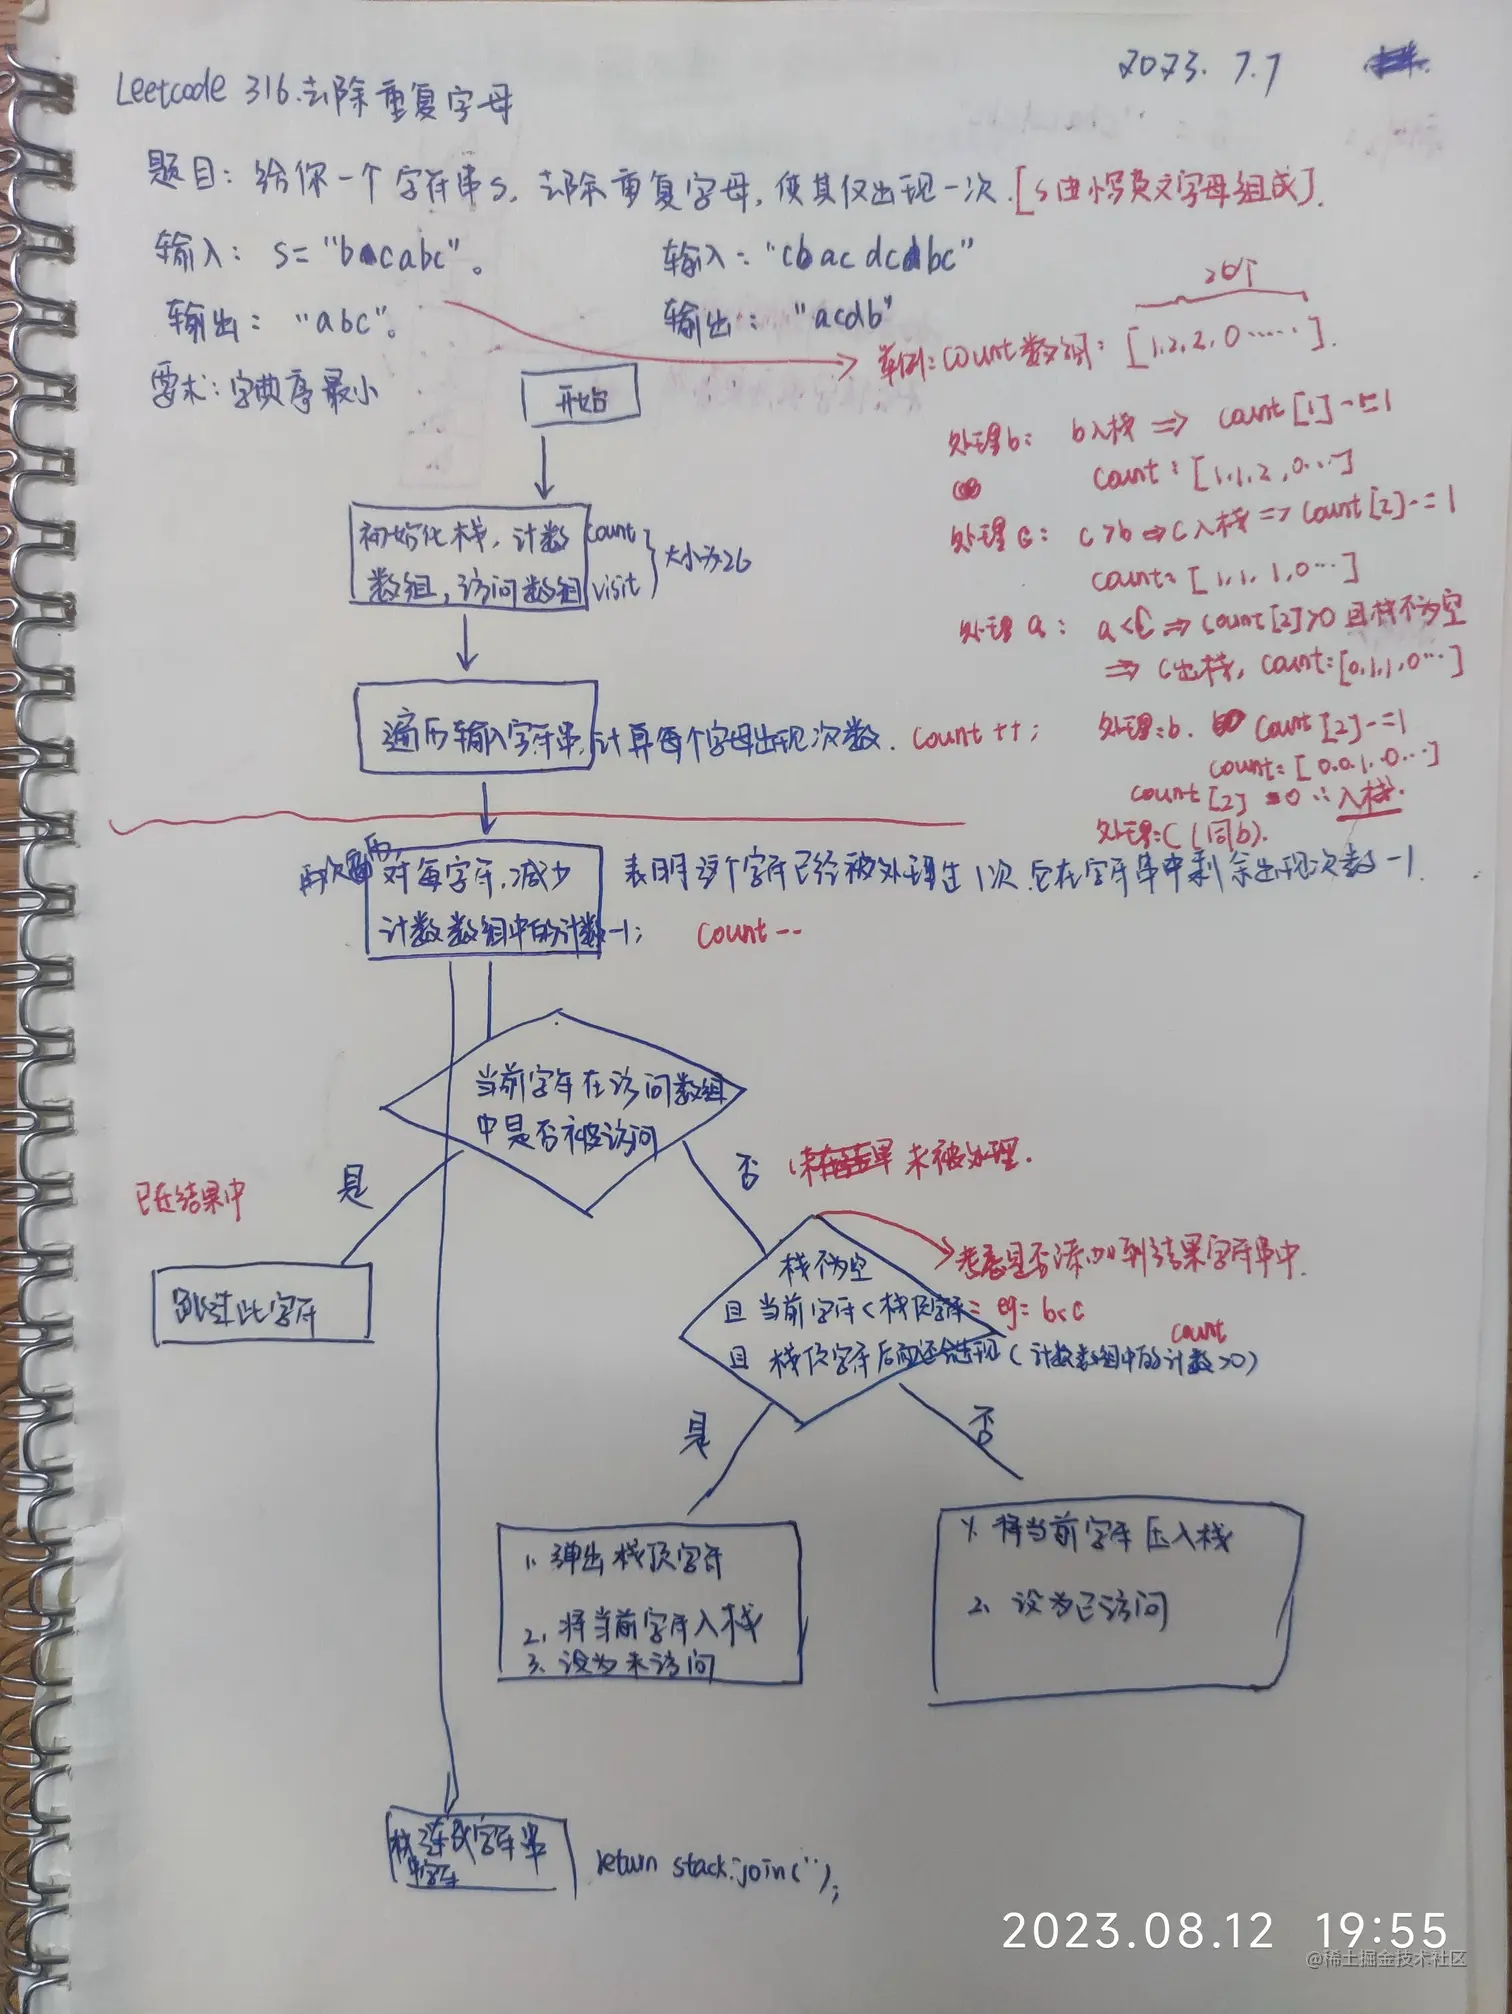 2023.7.7
Leetcode 316.去除重复字母
题目：给你一个字符串s，去除重复字母，使其仅出现一次.[s由小写英文字母组成].
输入：s="bcabc"。
输出："abc"。
输入："cbacdcdbc"
输出："acdb"
要求：字典序最小
26个
举例：count数组：[1,2,2,0……].
处理b：b入栈 => count[1]-=1
count：[1,1,2,0…]
处理c：c>b => c入栈 => count[2]-=1
count=[1,1,1,0…]
处理a：a<c => count[2]>0且栈不为空
=> c出栈，count:[0,1,1,0…]
处理:b. count[2]-=1
count=[0,0,1,0…]
count[2]=0 ∴入栈.
处理:c(同b).
开始
初始化栈，计数 count
数组，访问数组 visit
大小为26
遍历输入字符串,计算每个字母出现次数. count++;
再次遍历,
对每字符,减少
计数数组中的计数-1; count--
表明这个字符已经被处理过1次.它在字符串中剩余出现次数-1
当前字符在访问数组
中是否被访问
是
已在结果中
跳过此字符
否
未被处理.
考虑是否添加到结果字符串中.
栈不为空
且 当前字符<栈顶字符 eg= b<c
且 栈顶字符后面还会出现(计数数组中的计数>0)
count
是
1. 弹出栈顶字符
2. 将当前字符入栈
3. 设为未访问
否
1. 将当前字符压入栈
2. 设为已访问
连成字符串
return stack.join('');
2023.08.12 19:55
@稀土掘金技术社区